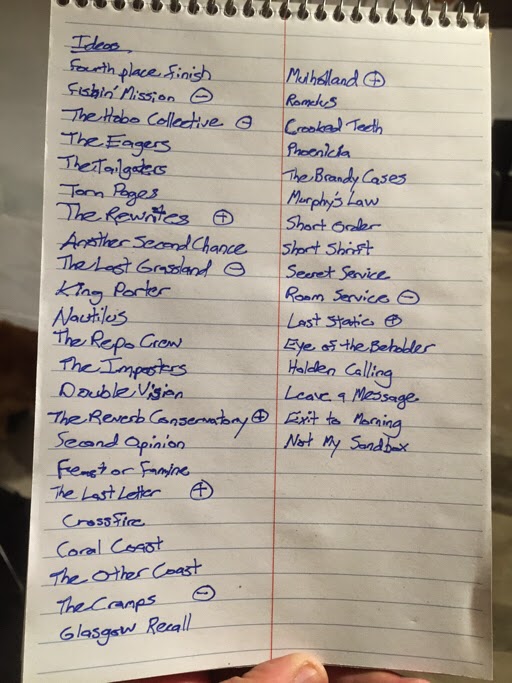 Ideas
Fourth place Finish
Fishin' Mission ⊖
The Hobo Collective ⊖
The Eagers
The Tailgaters
Torn Pages
The Rewrites ⊕
Another Second Chance
The Last Grassland ⊖
King Porter
Nautilus
The Repo Crew
The Imposters
Double Vision
The Reverb Conservatory ⊕
Second Opinion
Feast or Famine
The Last Letter ⊕
Crossfire
Coral Coast
The Other Coast
The Cramps ⊖
Glasgow Recall
Mulholland ⊕
Romulus
Crooked Teeth
Phoenicia
The Brandy Cases
Murphy's Law
Short Order
Short Shrift
Secret Service
Room Service ⊖
Last Static ⊕
Eye of the Beholder
Holden Calling
Leave a Message
Exit to Morning
Not My Sandbox